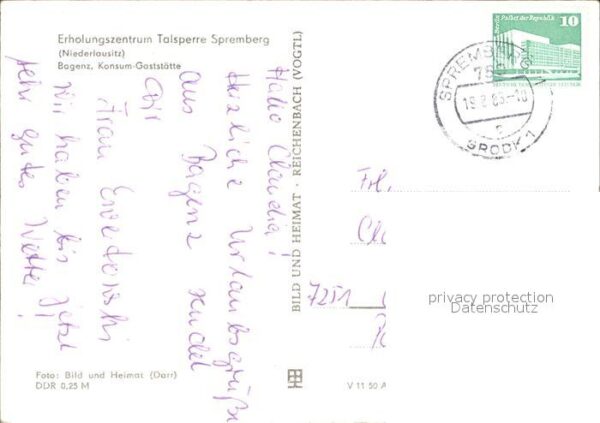 Erholungszentrum Talsperre Spremberg
(Niederlausitz)
Bagenz, Konsum-Gaststätte
Hallo Claudia!
Herzliche Urlaubsgrüße
aus Bagenz sendet
Dir
Frau
Wir haben bis jetzt
sehr gutes Wetter!
Foto: Bild und Heimat (Darr)
DDR 0,25 M
BILD UND HEIMAT · REICHENBACH (VOGTL)
V 11 50 A
Berlin Palast der Republik 10
SPREMBERG 1
GRODK 1
Frl.
Cl
7251
privacy protection
Datenschutz